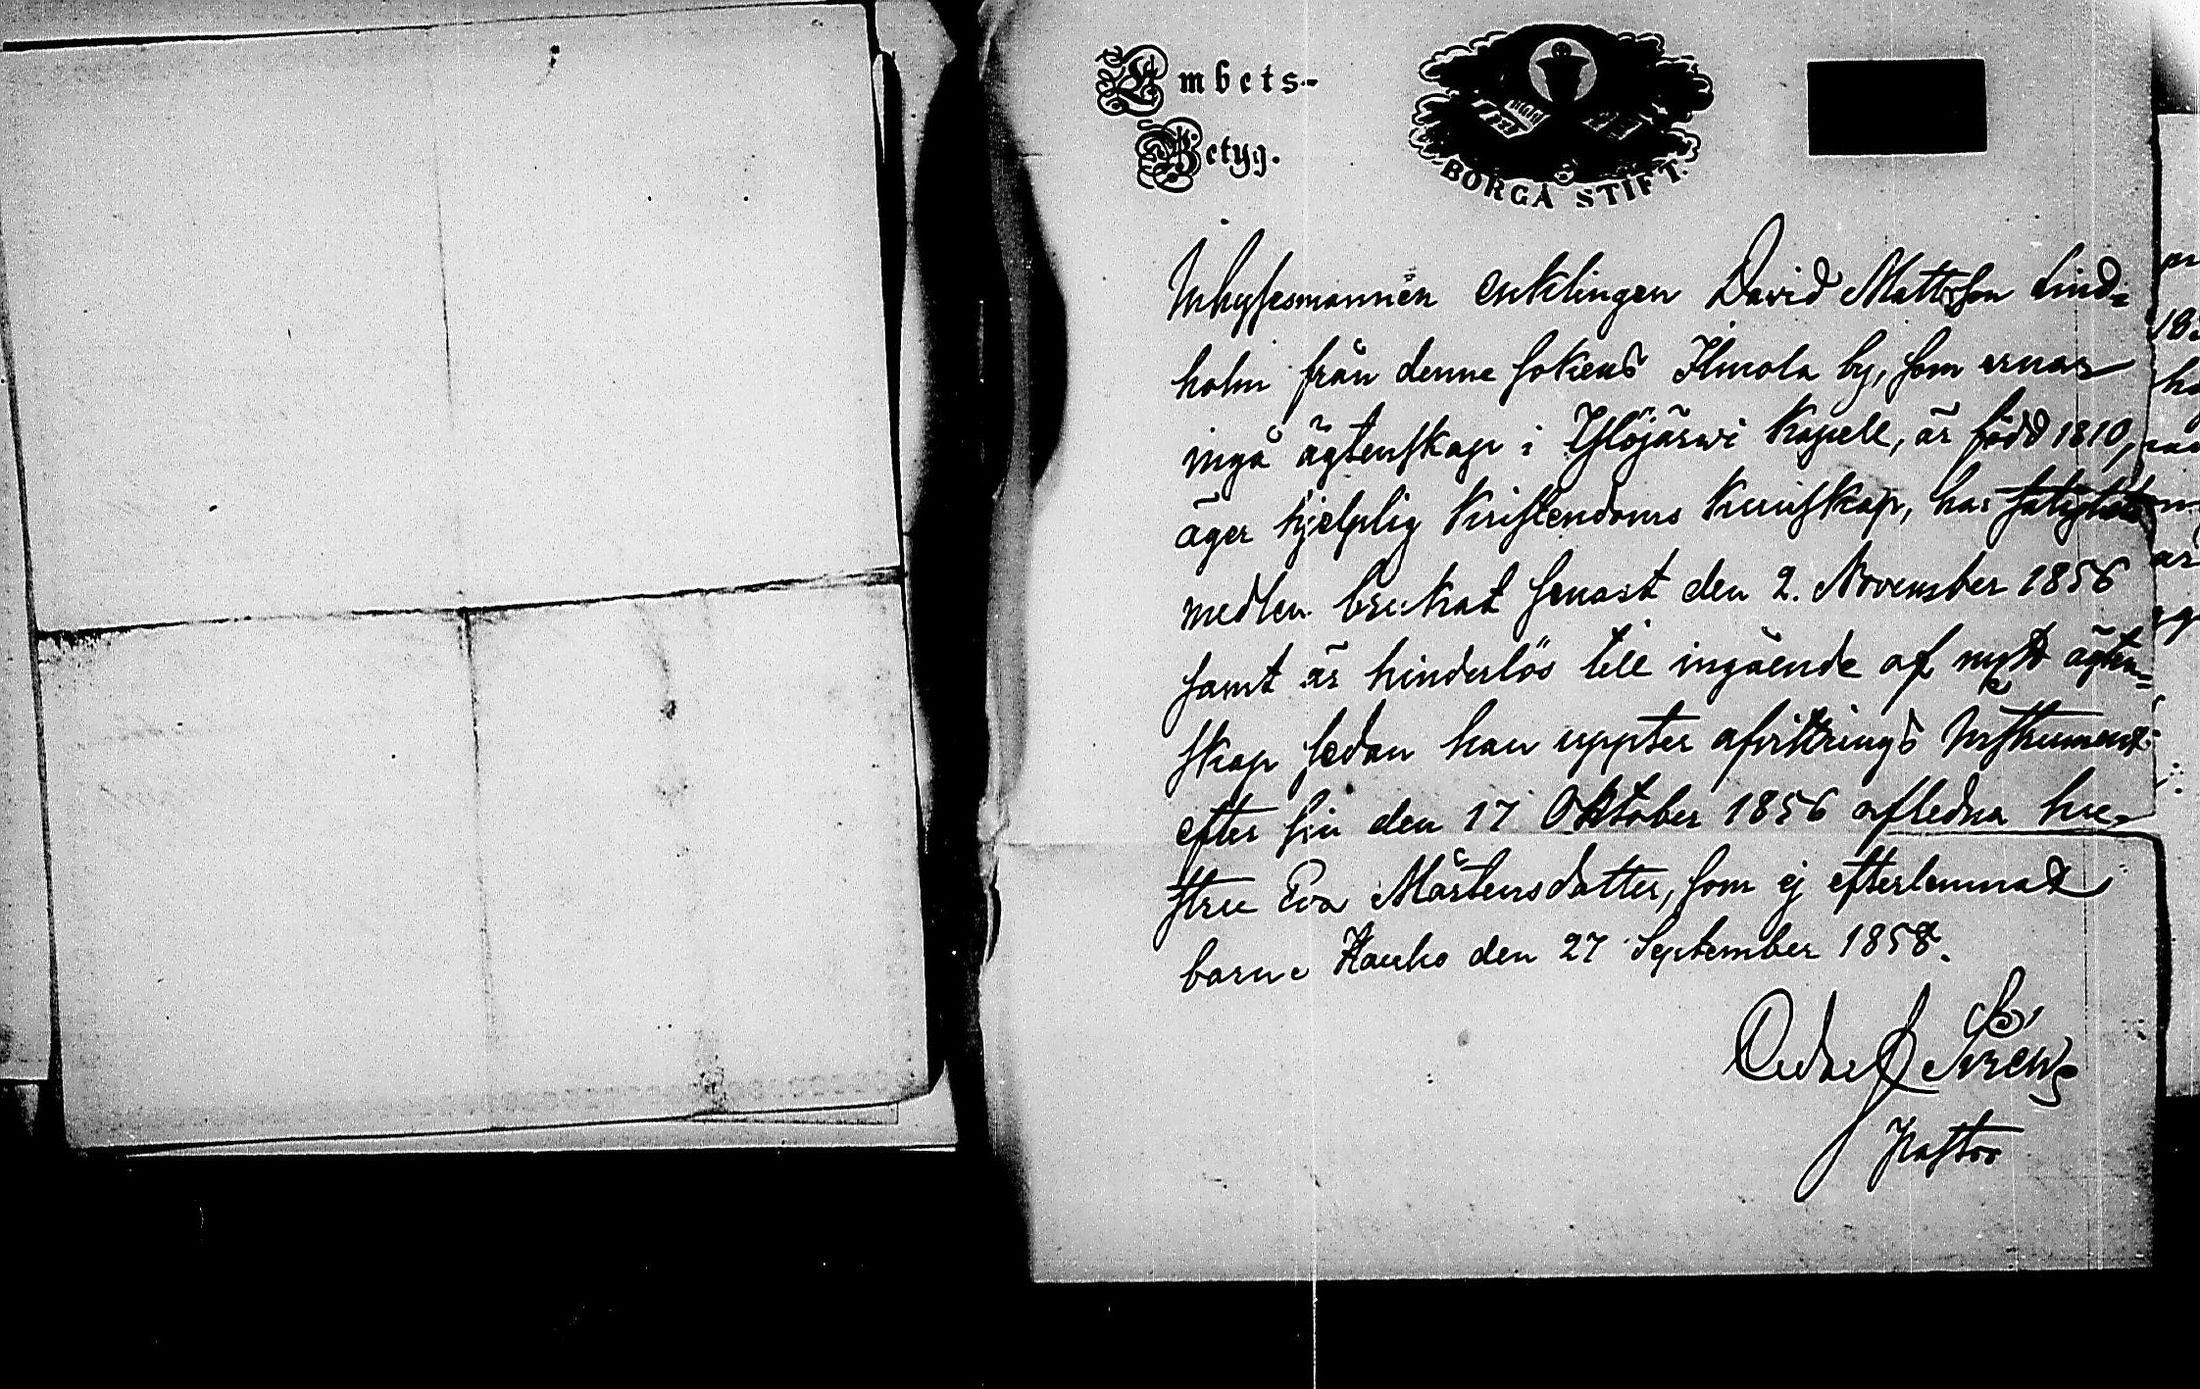 Embets-
Betyg.
BORGÅ STIFT.
Inhysesmannen enklingen David Mattsson Lind=
holm från denne sokens Ilmola by, som ernar
ingå ägtenskap i Ylöjärwi Kapell, är född 1810,
äger hjelplig Kristendoms Kunskap, har salighets
medlen brukat senast den 2. November 1856
samt är hinderlös till ingående af nytt ägten=
skap sedan han uppter afvittrings Instrument
efter sin den 17 Oktober 1856 afledna hu-
stru Eva Mårtensdotter, som ej efterlemnat
barn. Hauho den 27 September 1858.
Pastor